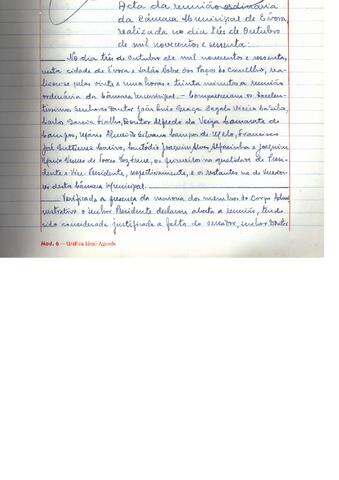 Acta da reunião ordinária
da Câmara Municipal de Évora,
realizada no dia três de Outubro
de mil novecentos e sessenta:
No dia três de Outubro de mil novecentos e sessenta,
nesta cidade de Évora e Salão Nobre dos Paços do Concelho, rea-
lizou-se pelas vinte e uma horas e trinta minutos a reunião
ordinária da Câmara Municipal. — Compareceram os Excelen-
tíssimos Senhores Doutor João Luís
Carlos Garcia Fialho, Doutor Alfredo da Veiga Camarate de
Campos, Mário Silvano Campos de Melo, Francisco
José Caeiro, Custódio Joaquim Alves Alparinha e Joaquim
Nunes de, os primeiros na qualidade de Presi-
dente e Vice Presidente, respectivamente, e os restantes na de Vereado-
res desta Câmara Municipal.
Verificada a presença da maioria dos membros do Corpo Admi-
nistrativo o Senhor Presidente declarou aberta a reunião, tendo
sido considerada justificada a falta do vereador, senhor Doutor
Mod. 6 — Gráfica Ideal-Agueda